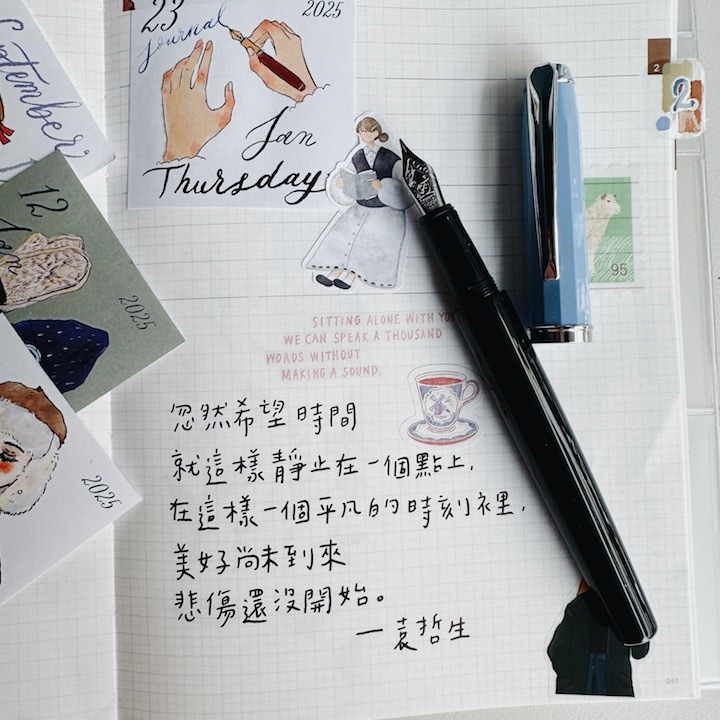 23
2025
Journal
Jan
Thursday
September
12
Jan
2025
2025
2
2
95
SITTING ALONE WITH YO
WE CAN SPEAK A THOUSAND
WORDS WITHOUT
MAKING A SOUND.
忽然希望時間
就這樣靜止在一個點上,
在這樣一個平凡的時刻裡,
美好尚未到來
悲傷還沒開始。
— 袁哲生